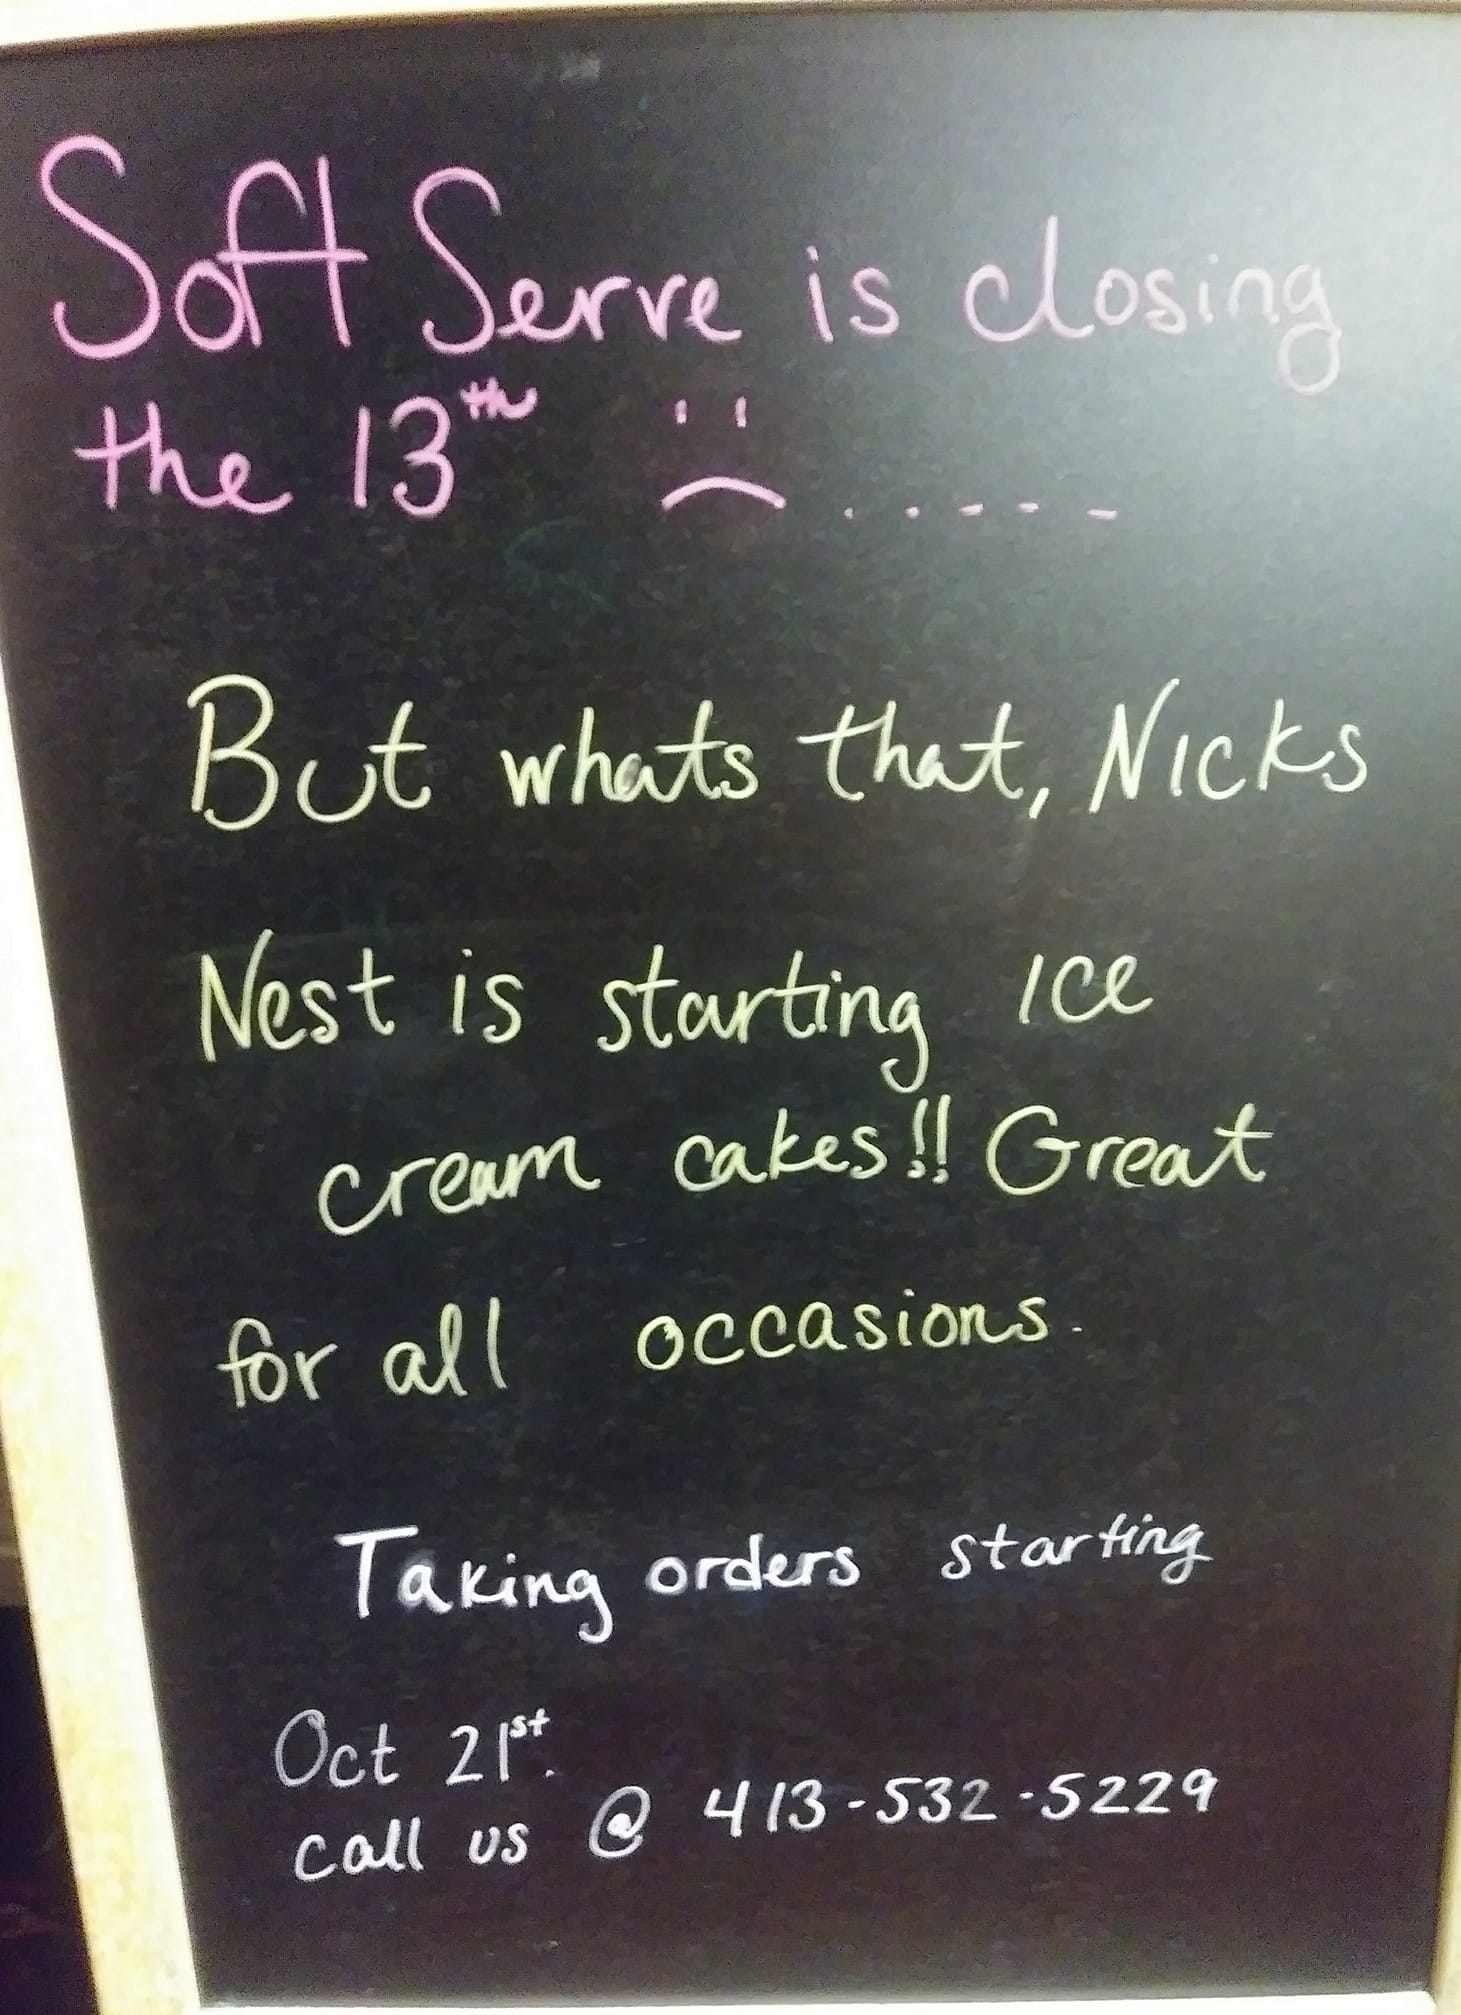 Soft Serve is closing
the 13th :( . . - - -
But whats that, Nicks
Nest is starting Ice
cream cakes!! Great
for all occasions.
Taking orders starting
Oct 21st.
call us @ 413-532-5229